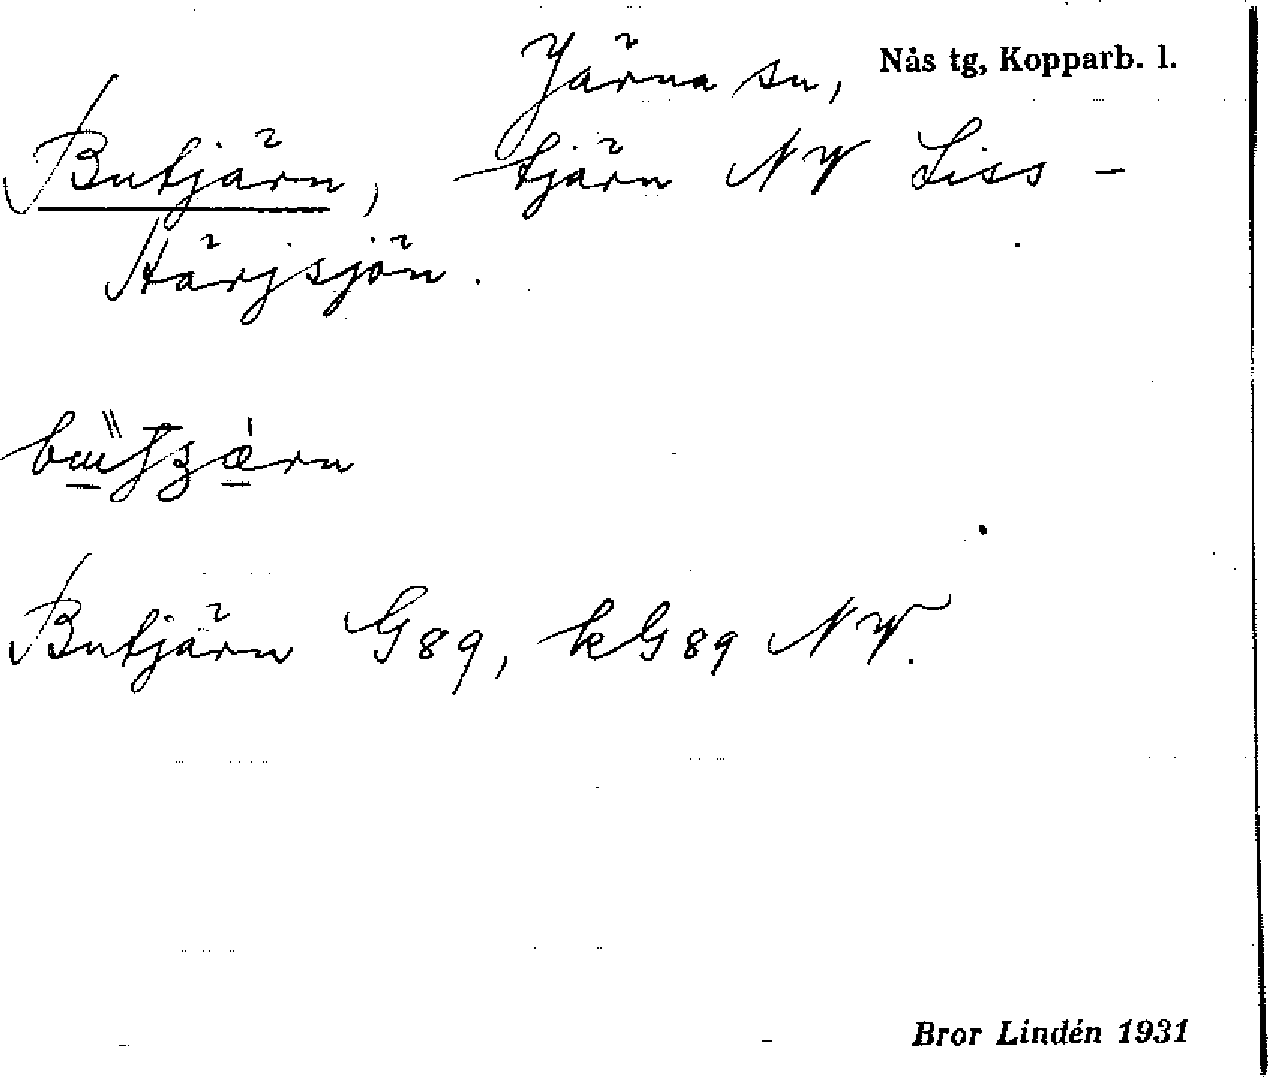 Järna sn, Nås tg, Kopparb. l.
Butjärn, tjärn NV Liss-
Härjsjön.
Butjärn G89, kG89 NV.
Bror Lindén 1931